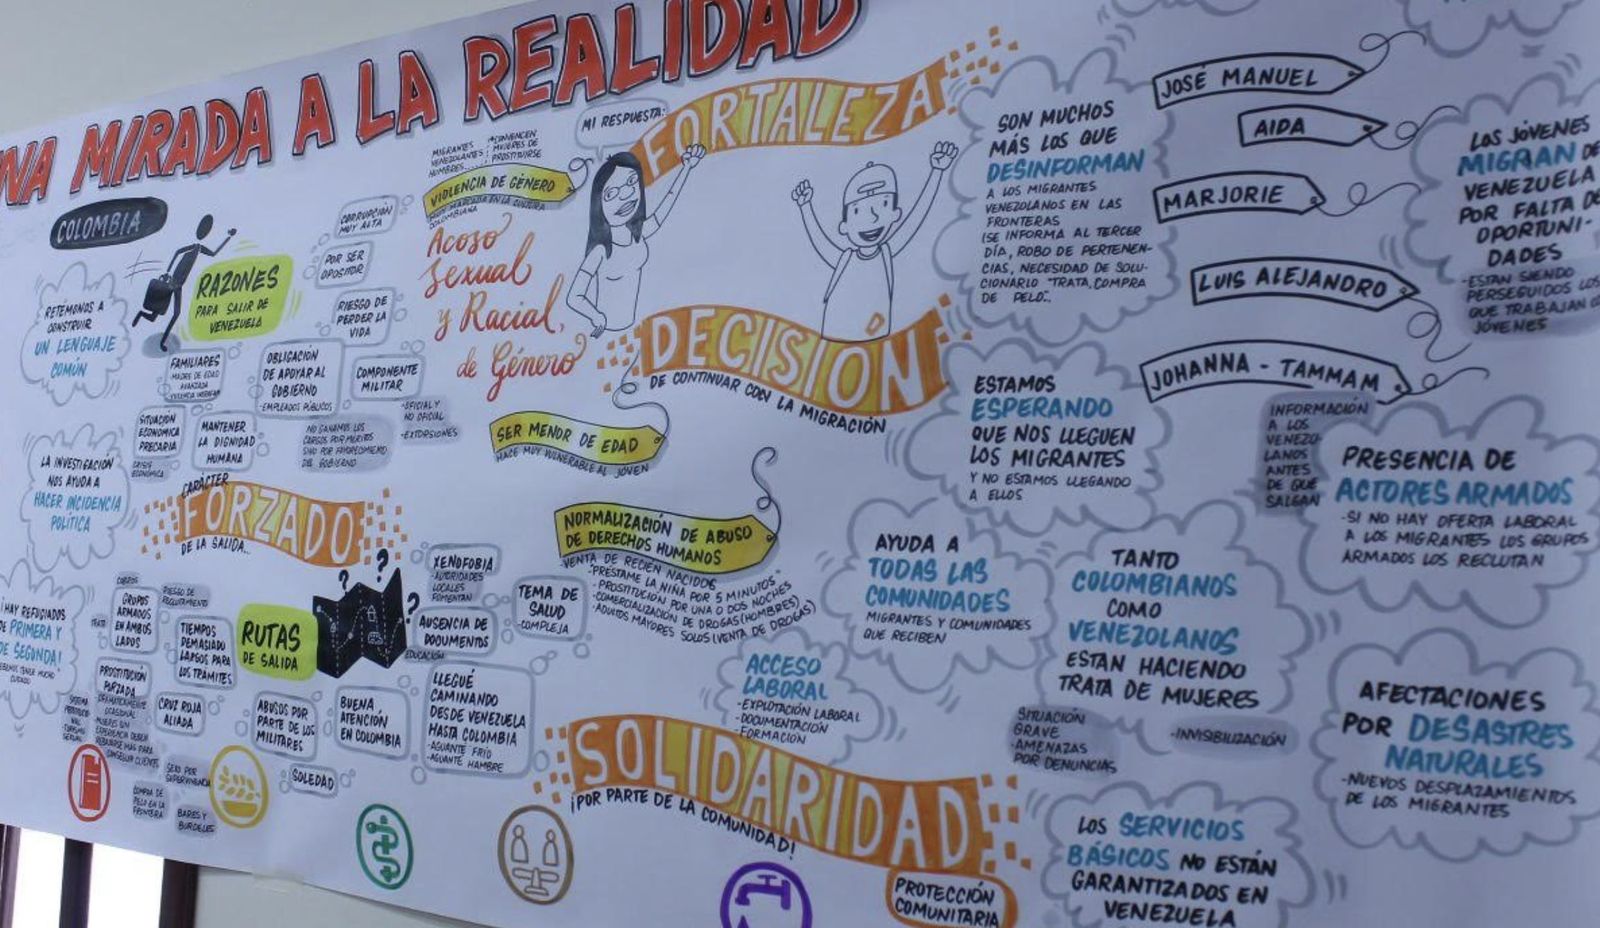 UNA MIRADA A LA REALIDAD
COLOMBIA
RETÉMONOS A
CONSTRUIR
UN LENGUAJE
COMÚN
RAZONES
PARA SALIR DE
VENEZUELA
CORRUPCIÓN
MUY ALTA
POR SER
OPOSITOR
RIESGO DE
PERDER LA
VIDA
FAMILIARES
-MADRE DE EDAD
AVANZADA
OBLIGACIÓN
DE APOYAR AL
GOBIERNO
-EMPLEADOS PÚBLICOS
COMPONENTE
MILITAR
-OFICIAL Y
NO OFICIAL
-EXTORSIONES
SITUACIÓN
ECONOMICA
PRECARIA
CRISIS
ECONÓMICA
MANTENER
LA DIGNIDAD
HUMANA
NO GANAMOS LOS
CARGOS POR MÉRITOS
SINO POR FAVORECIMIENTO
DEL GOBIERNO
LA INVESTIGACIÓN
NOS AYUDA A
HACER INCIDENCIA
POLÍTICA
CARÁCTER
FORZADO
DE LA SALIDA...
¡HAY REFUGIADOS
DE PRIMERA Y
DE SEGUNDA!
DEBEMOS TENER MUCHO
CUIDADO
COBROS
GRUPOS
ARMADOS EN
AMBOS
LADOS
TRATA
RIESGO DE
RECLUTAMIENTO
TIEMPOS
DEMASIADO
LARGOS PARA
LOS TRÁMITES
RUTAS
DE SALIDA
? ? ?
XENOFOBIA
-AUTORIDADES
LOCALES
FOMENTAN
AUSENCIA DE
DOCUMENTOS
EDUCACIÓN
TEMA DE
SALUD
-COMPLEJA
PROSTITUCIÓN
FORZADA
CRUZ ROJA
ALIADA
ABUSOS POR
PARTE DE LOS
MILITARES
BUENA
ATENCIÓN
EN COLOMBIA
LLEGUÉ
CAMINANDO
DESDE VENEZUELA
HASTA COLOMBIA
-AGUANTE FRÍO
-AGUANTE HAMBRE
SEXO POR
SUPERVIVENCIA
SOLEDAD
COMPRA DE
PELO EN LA
FRONTERA
BARES Y
BURDELES
MIGRANTES
VENEZOLANTES
HOMBRES....
CONVENCEN
MUJERES DE
PROSTITUIRSE
VIOLENCIA DE GÉNERO
MUY MARCADA EN LA CULTURA
COLOMBIANA
Acoso
Sexual
y Racial,
de Género
MI RESPUESTA:
FORTALEZA
DECISIÓN
DE CONTINUAR CON LA MIGRACIÓN
SER MENOR DE EDAD
HACE MUY VULNERABLE AL JOVEN
NORMALIZACIÓN DE ABUSO
DE DERECHOS HUMANOS
-VENTA DE RECIEN NACIDOS
"PRÉSTAME LA NIÑA POR 5 MINUTOS"
-PROSTITUCIÓN POR UNA O DOS NOCHES
-COMERCIALIZACIÓN DE DROGAS (HOMBRES)
-ADULTOS MAYORES SOLOS (VENTA DE DROGAS)
ACCESO
LABORAL
-EXPLOTACIÓN LABORAL
-DOCUMENTACIÓN
-FORMACIÓN
SOLIDARIDAD
¡POR PARTE DE LA COMUNIDAD!
PROTECCIÓN
COMUNITARIA
SON MUCHOS
MÁS LOS QUE
DESINFORMAN
A LOS MIGRANTES
VENEZOLANOS EN LAS
FRONTERAS
(SE INFORMA AL TERCER
DÍA, ROBO DE PERTENEN-
CIAS, NECESIDAD DE SOLU-
CIONARLO "TRATA, COMPRA
DE PELO"..
ESTAMOS
ESPERANDO
QUE NOS LLEGUEN
LOS MIGRANTES
Y NO ESTAMOS LLEGANDO
A ELLOS
AYUDA A
TODAS LAS
COMUNIDADES
MIGRANTES Y COMUNIDADES
QUE RECIBEN
TANTO
COLOMBIANOS
COMO
VENEZOLANOS
ESTAN HACIENDO
TRATA DE MUJERES
SITUACIÓN
GRAVE
-AMENAZAS
POR DENUNCIAS
-INVISIBILIZACIÓN
LOS SERVICIOS
BÁSICOS NO ESTÁN
GARANTIZADOS EN
VENEZUELA
JOSÉ MANUEL
AIDA
MARJORIE
LUIS ALEJANDRO
JOHANNA - TAMMAM
LOS JÓVENES
MIGRAN DE
VENEZUELA
POR FALTA DE
OPORTUNI-
DADES
-ESTAN SIENDO
PERSEGUIDOS LOS
QUE TRABAJAN
JÓVENES
INFORMACIÓN
A LOS
VENEZO-
LANOS
ANTES
DE QUE
SALGAN
PRESENCIA DE
ACTORES ARMADOS
-SI NO HAY OFERTA LABORAL
A LOS MIGRANTES LOS GRUPOS
ARMADOS LOS RECLUTAN
AFECTACIONES
POR DESASTRES
NATURALES
-NUEVOS DESPLAZAMIENTOS
DE LOS MIGRANTES